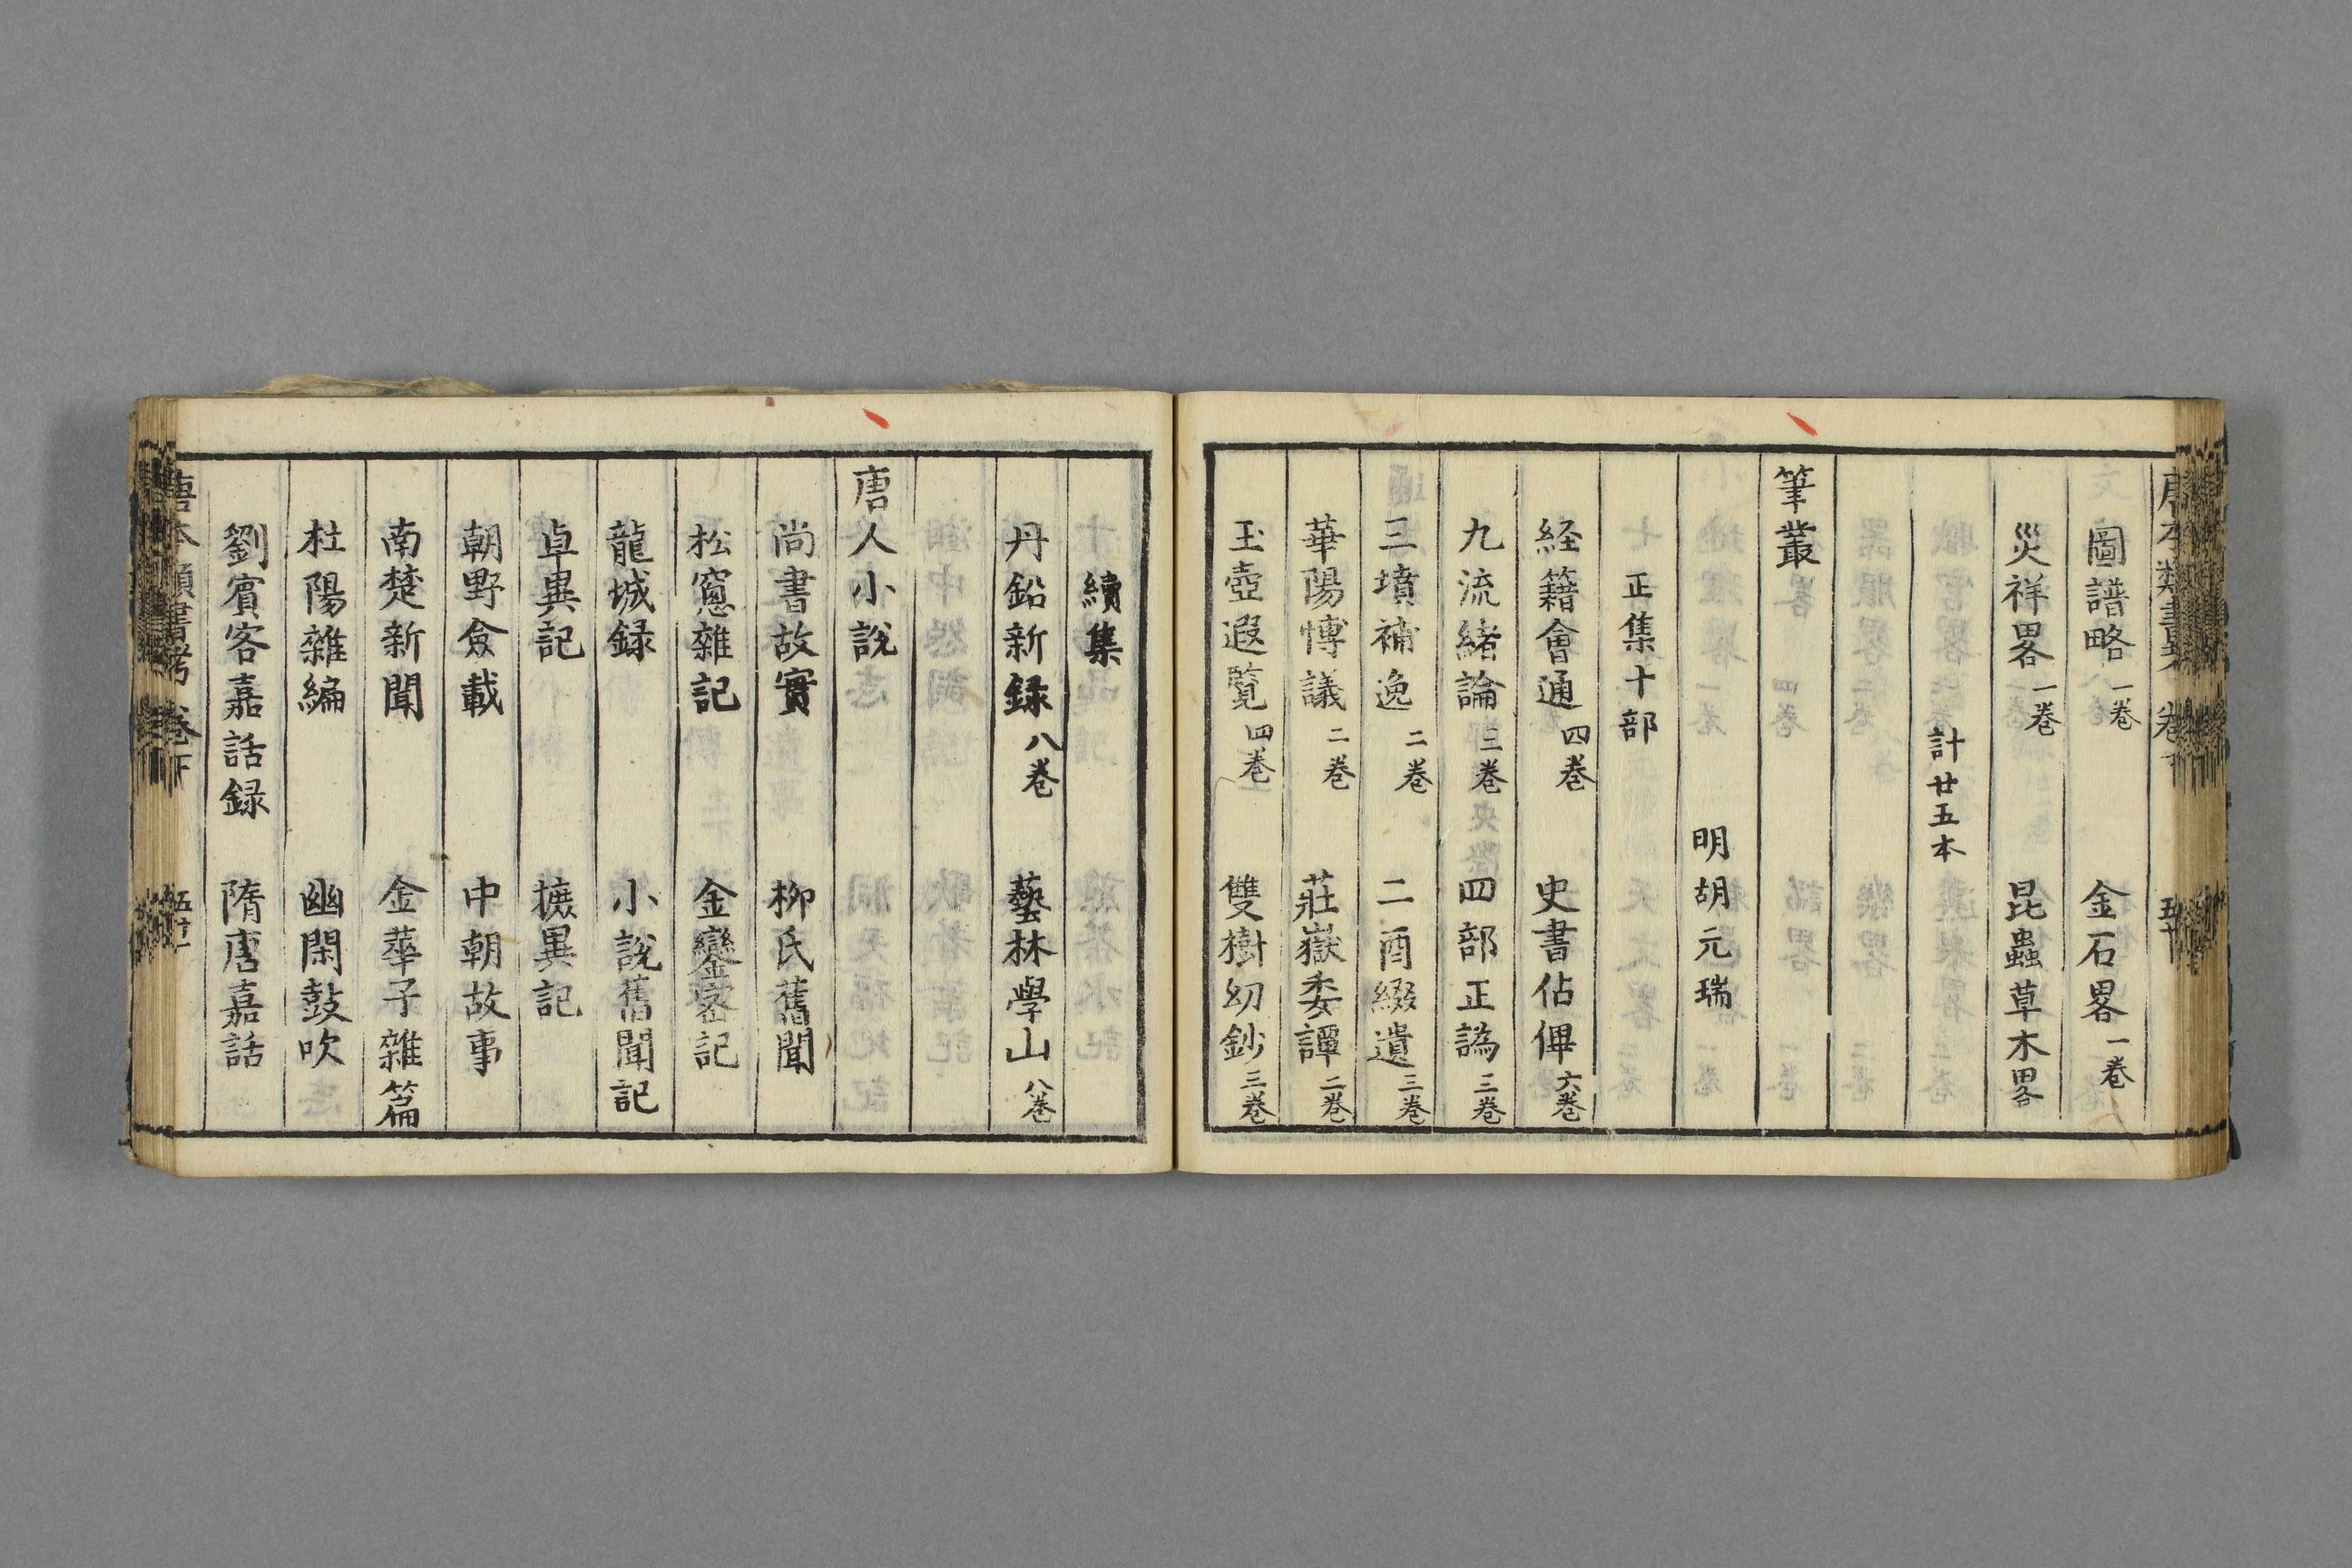 圖譜略一卷 金石畧一卷
災祥畧一卷 昆蟲草木畧
計廿五本
筆叢
明胡元瑞
正集十部
経籍會通四巻 史書佔㑆六巻
九流緒論三巻 四部正譌三巻
三墳補逸二巻 二酉綴遺三巻
華陽愽議二巻 莊嶽委譚二巻
玉壺遐覧四巻 雙樹幻鈔三巻
續集
丹鉛新録八巻 藝林學山八巻
唐人小說
尚書故實 柳氏舊聞
松窻雜記 金鑾密記
龍城録 小說舊聞記
卓異記 摭異記
朝野僉載 中朝故事
南楚新聞 金華子雜篇
杜陽雜編 幽閑鼓吹
劉賓客嘉話録 隋唐嘉話
唐本類書考 巻下 五十一